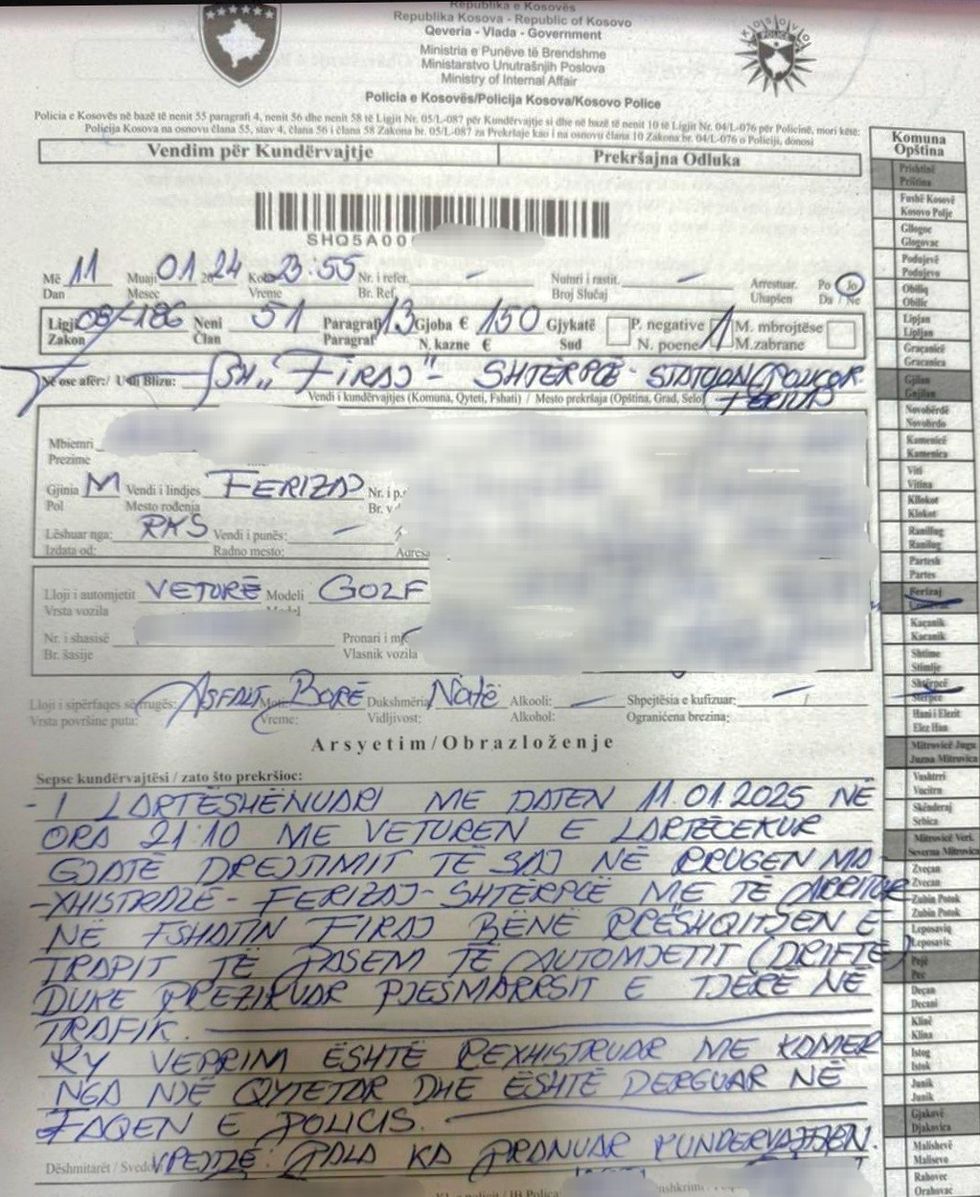 Republika e Kosovës
Republika Kosova - Republic of Kosovo
Qeveria - Vlada - Government
Ministria e Punëve të Brendshme
Ministarstvo Unutrašnjih Poslova
Ministry of Internal Affair
Policia e Kosovës/Policija Kosova/Kosovo Police
Policia e Kosovës në bazë të nenit 55 paragrafi 4, nenit 56 dhe nenit 58 të Ligjit Nr. 05/L-087 për Kundërvajtje si dhe në bazë të nenit 10 të Ligjit Nr. 04/L-076 për Policinë, mori këtë:
Policija Kosova na osnovu člana 55, stav 4, člana 56 i člana 58 Zakona br. 05/L-087 za Prekršaje kao i na osnovu člana 10 Zakona br. 04/L-076 o Policiji, donosi
Vendim për Kundërvajtje Prekršajna Odluka
SHQ5A00
Më 11 Muaji 01 20 24 Koha 23:55 Nr. i refer. - Numri i rastit. - Arrestuar. Po Jo
Dan Mesec Vreme Br. Ref. Broj Slučaj Uhapšen Da / Ne
Ligji 08/-186 Neni 51 Paragraf 13 Gjoba € 150 Gjykatë P. negative 1 M. mbrojtëse
Zakon Član Paragraf N. kazne € Sud N. poene M.zabrane
Në ose afër:/ U ili Blizu: FSH,, FIRAJ"- SHTËRPCË-
Vendi i kundërvajtjes (Komuna, Qyteti, Fshati) / Mesto prekršaja (Opština, Grad, Selo)
Mbiemri
Prezime
Gjinia M Vendi i lindjes FERIZAJ Nr. i p.
Pol Mesto rođenja Br. v
Lëshuar nga: RKS Vendi i punës: -
Izdata od: Radno mesto: Adresa
Lloji i automjetit VETURË Modeli GOLF
Vrsta vozila Model
Nr. i shasisë Pronari i
Br. šasije Vlasnik vozila
Lloji i sipërfaqes së rrugës: ASFALT BORË Dukshmëria Natë Alkooli: - Shpejtësia e kufizuar: -
Vrsta površine puta: Vreme: Vidljivost: Alkohol: Ograničena brezina:
Arsyetim/Obrazloženje
Sepse kundërvajtësi / zato što prekršioc:
- I LARTËSHËNUARI ME DATEN 11.01.2025 NË
ORA 21:10 ME VETUREN E LARTËCEKUR
GJATË DREJTIMIT TË SAJ NË RRUGEN MA-
-XHISTRALE- FERIZAJ-SHTËRPCË ME TË ARRITUR
NË FSHATIN FIRAJ BËNË RRËSHQITJEN E
TRAPIT TË PASEM TË AUTOMJETIT (DRIFTE)
DUKE RREZIKUAR PJESMARRSIT E TJERË NË
TRAFIK.
KY VEPRIM ËSHTË REXHISTRUAR ME KAMER
NGA NJË QYTETAR DHE ËSHTË DERGUAR NË
FAQEN E POLICIS.
Dëshmitarët / Svedo PALA KA PRANUAR KUNDERVAJTJEN.
Komuna
Opština
Prishtinë
Priština
Fushë Kosovë
Kosovo Polje
Gllogoc
Glogovac
Podujevë
Podujevo
Obiliq
Obilić
Lipjan
Lipljan
Graçanicë
Gracanica
Gjilan
Gnjilan
Novobërdë
Novobrdo
Kamenicë
Kamenica
Viti
Vitina
Kllokot
Klokot
Ranillug
Ranilug
Partesh
Partes
Ferizaj
Kaçanik
Kacanik
Shtime
Stimlje
Shtërpcë
Sterpce
Hani i Elezit
Elez Han
Mitrovicë Jugu
Juzna Mitrovica
Vushtrri
Vucitrn
Skënderaj
Srbica
Mitrovicë Veri.
Severna Mitrovica
Zveçan
Zvecan
Zubin Potok
Zubin Potok
Leposaviq
Leposavic
Pejë
Pec
Deçan
Decani
Klinë
Klina
Istog
Istok
Junik
Junik
Gjakovë
Djakovica
Malishevë
Malisevo
Rahovec
Orahovac